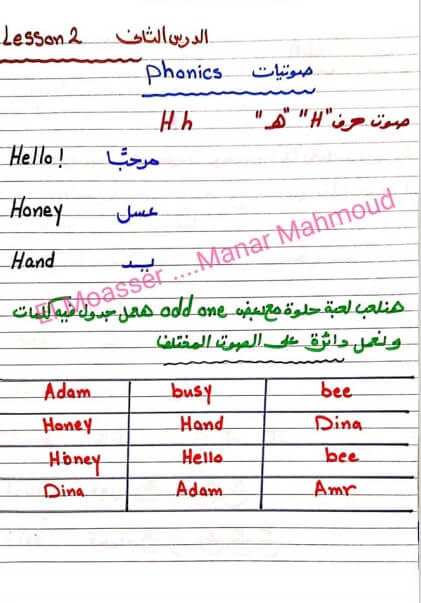 Lesson 2 الدرس الثانى
Phonics صوتيات
صوت حرف "H" "هـ" H h
Hello! مرحبًا
Honey عسل
Hand يد
El Moasser .... Manar Mahmoud
هنلعب لعبة حلوة مع بعض odd one هعمل جدول فيه كلمات
ونعمل دائرة على الصوت المختلف
Adam busy bee
Honey Hand Dina
Honey Hello bee
Dina Adam Amr